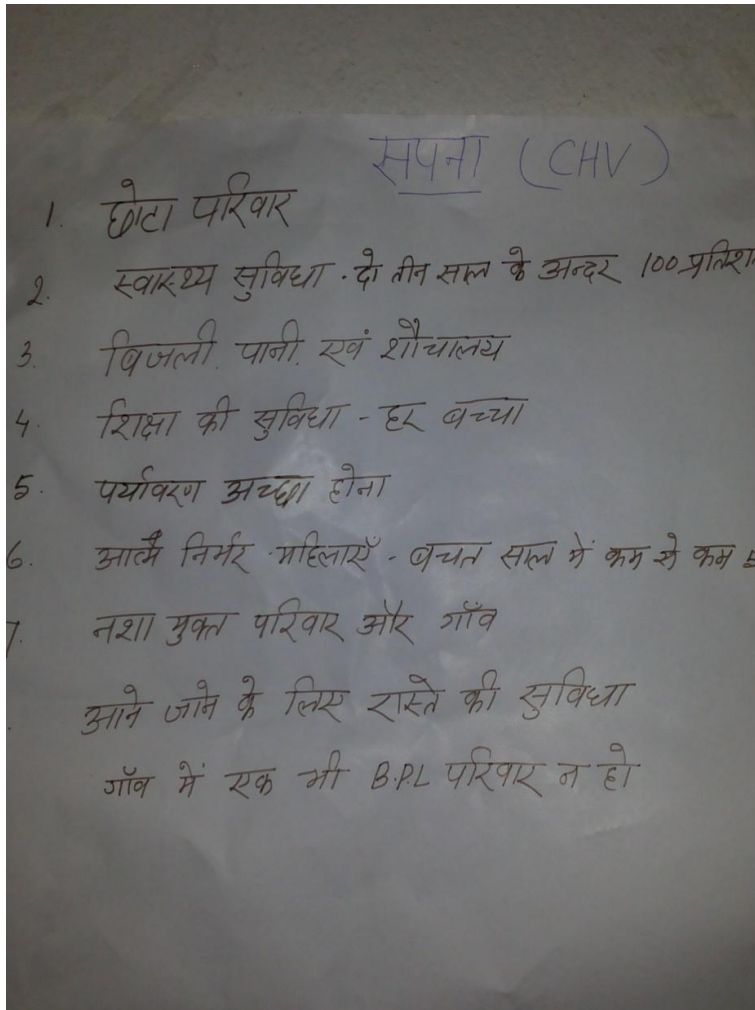 सपना (CHV)
1. छोटा परिवार
2. स्वास्थ्य सुविधा - दो तीन साल के अन्दर 100 प्रतिश
3. बिजली, पानी, एवं शौचालय
4. शिक्षा की सुविधा - हर बच्चा
5. पर्यावरण अच्छा होना
6. आत्म निर्भर महिलाएँ - बचत साल में कम से कम
7. नशा मुक्त परिवार और गाँव
आने जाने के लिए रास्ते की सुविधा
गाँव में एक भी B.P.L परिवार न हो